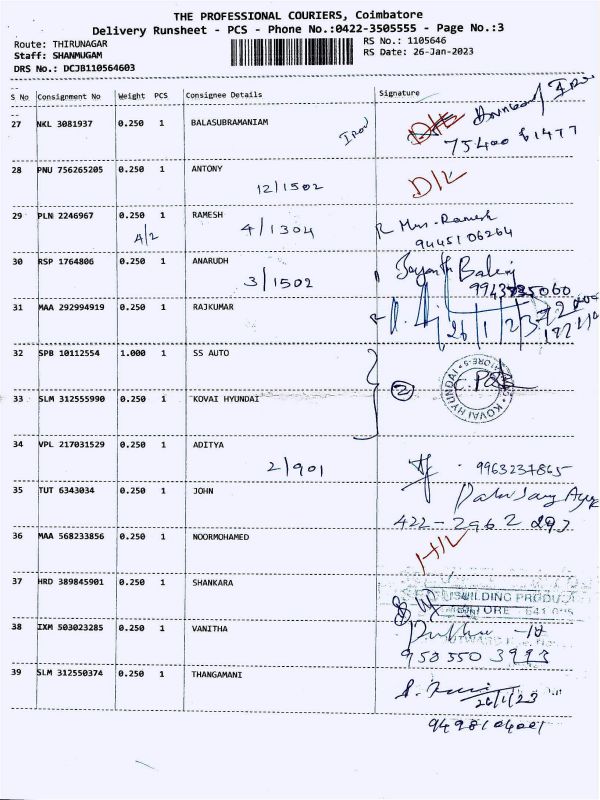 THE PROFESSIONAL COURIERS, Coimbatore
Delivery Runsheet - PCS - Phone No.:0422-3505555 - Page No.:3
Route: THIRUNAGAR
RS No.: 1105646
Staff: SHANMUGAM
RS Date: 26-Jan-2023
DRS No.: DCJB110564603
S No Consignment No Weight PCS Consignee Details Signature
27 NKL 3081937 0.250 1 BALASUBRAMANIAM
28 PNU 756265205 0.250 1 ANTONY
12/1502
D/L
29 PLN 2246967 0.250 1 RAMESH
A/2 4/1304
Mrs. Ramesh
9445106264
30 RSP 1764806 0.250 1 ANARUDH
3/1502
31 MAA 292994919 0.250 1 RAJKUMAR
26/1/23
32 SPB 10112554 1.000 1 SS AUTO
33 SLM 312555990 0.250 1 KOVAI HYUNDAI
2
KOVAI HYUNDAI
34 VPL 217031529 0.250 1 ADITYA
2/901
9963237865
35 TUT 6343034 0.250 1 JOHN
36 MAA 568233856 0.250 1 NOORMOHAMED
37 HRD 389845901 0.250 1 SHANKARA
BUILDING PRODUCT
38 IXM 503023285 0.250 1 VANITHA
953 550 3993
39 SLM 312550374 0.250 1 THANGAMANI
26/1/23